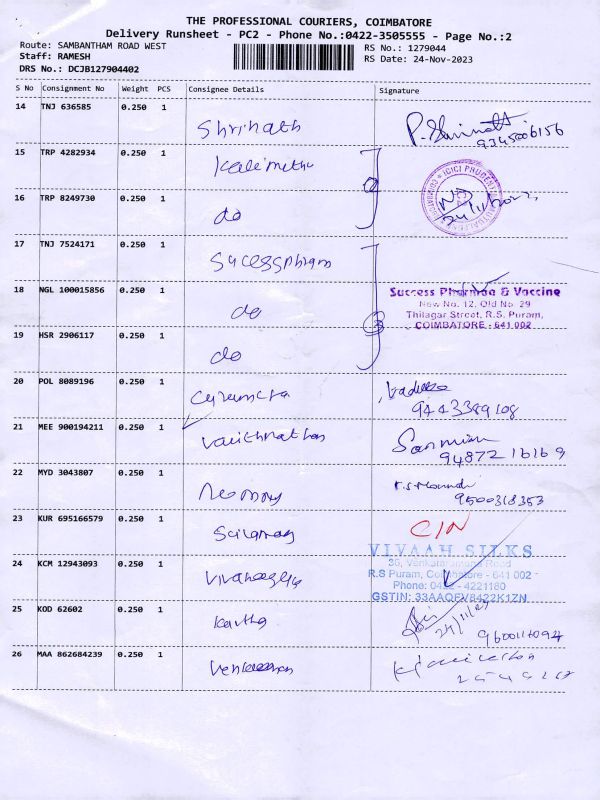 THE PROFESSIONAL COURIERS, COIMBATORE
Delivery Runsheet - PC2 - Phone No.:0422-3505555 - Page No.:2
Route: SAMBANTHAM ROAD WEST
RS No.: 1279044
Staff: RAMESH
RS Date: 24-Nov-2023
DRS No.: DCJB127904402
S No Consignment No Weight PCS Consignee Details Signature
14 TNJ 636585 0.250 1 Shrinath
9345006156
15 TRP 4282934 0.250 1 Kalimuthu
16 TRP 8249730 0.250 1 do
ICICI PRUDENTIAL
17 TNJ 7524171 0.250 1 Sucessphram
18 NGL 100015856 0.250 1 do
Success Pharmaa & Vaccine
New No. 12, Old No. 29
Thilagar Street, R.S. Puram,
COIMBATORE - 641 002
19 HSR 2906117 0.250 1 do
2
3
20 POL 8089196 0.250 1
9443389108
21 MEE 900194211 0.250 1 Vaithnathan
94872 16169
22 MYD 3043807 0.250 1
9500318353
23 KUR 695166579 0.250 1
C/N
24 KCM 12943093 0.250 1
VIVAAH SILKS
30, Venkataramana Road
R.S Puram, Coimbatore - 641 002
Phone: 0422 - 4221180
GSTIN: 33AAQFV8422K1ZN
25 KOD 62602 0.250 1 Kavitha
24/11/23
9600116094
26 MAA 862684239 0.250 1